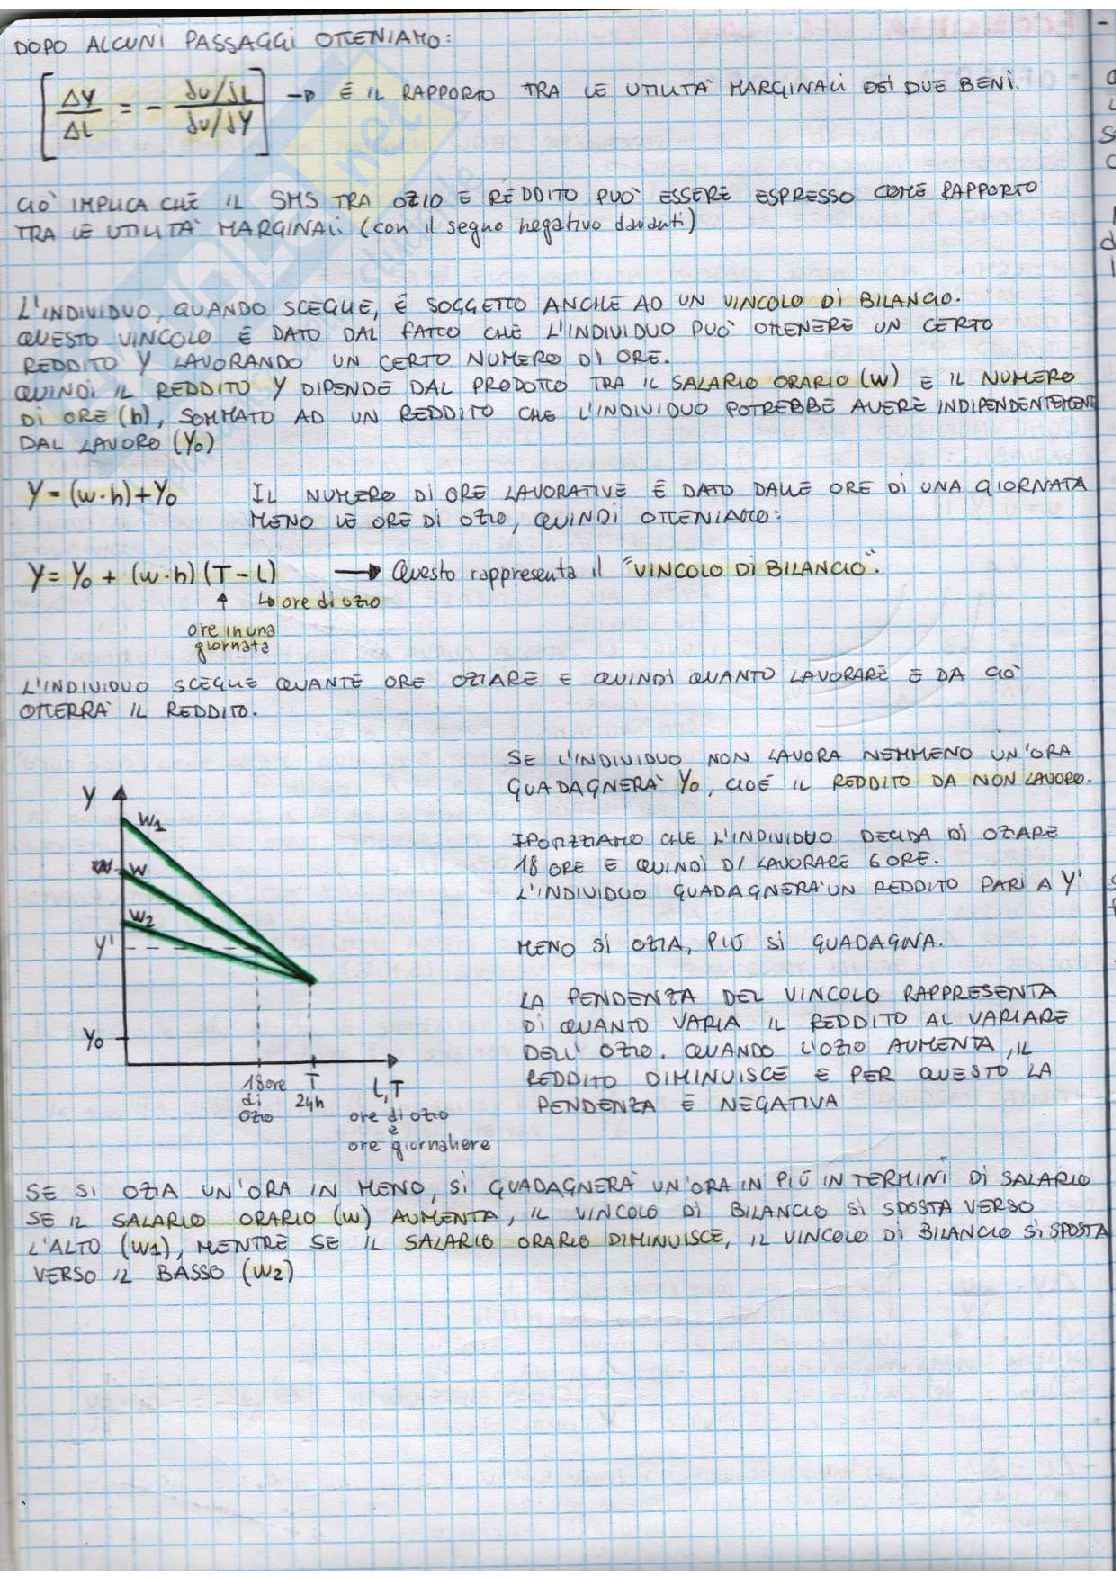 DOPO ALCUNI PASSAGGI OTTENIAMO:
[ΔY/ΔL = - ∂u/∂L / ∂u/∂Y] → È IL RAPPORTO TRA LE UTILITÀ MARGINALI DEI DUE BENI.
CIÒ IMPLICA CHE IL SMS TRA OZIO E REDDITO PUÒ ESSERE ESPRESSO COME RAPPORTO
TRA LE UTILITÀ MARGINALI (con il segno negativo davanti)
L'INDIVIDUO, QUANDO SCEGLIE, È SOGGETTO ANCHE AD UN VINCOLO DI BILANCIO.
QUESTO VINCOLO È DATO DAL FATTO CHE L'INDIVIDUO PUÒ OTTENERE UN CERTO
REDDITO Y LAVORANDO UN CERTO NUMERO DI ORE.
QUINDI IL REDDITO Y DIPENDE DAL PRODOTTO TRA IL SALARIO ORARIO (W) E IL NUMERO
DI ORE (h), SOMMATO AD UN REDDITO CHE L'INDIVIDUO POTREBBE AVERE INDIPENDENTEMENT
DAL LAVORO (Y₀)
Y = (w·h) + Y₀ IL NUMERO DI ORE LAVORATIVE È DATO DALLE ORE DI UNA GIORNATA
MENO LE ORE DI OZIO, QUINDI OTTENIAMO:
Y = Y₀ + (w·h)(T - L) → Questo rappresenta il "VINCOLO DI BILANCIO".
↑ ↳ ore di ozio
ore in una
giornata
L'INDIVIDUO SCEGLIE QUANTE ORE OZIARE E QUINDI QUANTO LAVORARE E DA CIÒ
OTTERRÀ IL REDDITO.
SE L'INDIVIDUO NON LAVORA NEMMENO UN'ORA
GUADAGNERÀ Y₀, CIOÈ IL REDDITO DA NON LAVORO.
IPOTIZZIAMO CHE L'INDIVIDUO DECIDA DI OZIARE
18 ORE E QUINDI DI LAVORARE 6 ORE.
L'INDIVIDUO GUADAGNERÀ UN REDDITO PARI A Y'
MENO SI OZIA, PIÙ SI GUADAGNA.
LA PENDENZA DEL VINCOLO RAPPRESENTA
DI QUANTO VARIA IL REDDITO AL VARIARE
DELL'OZIO. QUANDO L'OZIO AUMENTA, IL
REDDITO DIMINUISCE E PER QUESTO LA
PENDENZA È NEGATIVA
Y
W1
W
W2
Y'
Y₀
18 ore
di
ozio
T
24h
L,T
ore di ozio
e
ore giornaliere
SE SI OZIA UN'ORA IN MENO, SI GUADAGNERÀ UN'ORA IN PIÙ IN TERMINI DI SALARIO
SE IL SALARIO ORARIO (W) AUMENTA, IL VINCOLO DI BILANCIO SI SPOSTA VERSO
L'ALTO (W1), MENTRE SE IL SALARIO ORARIO DIMINUISCE, IL VINCOLO DI BILANCIO SI SPOSTA
VERSO IL BASSO (W2)